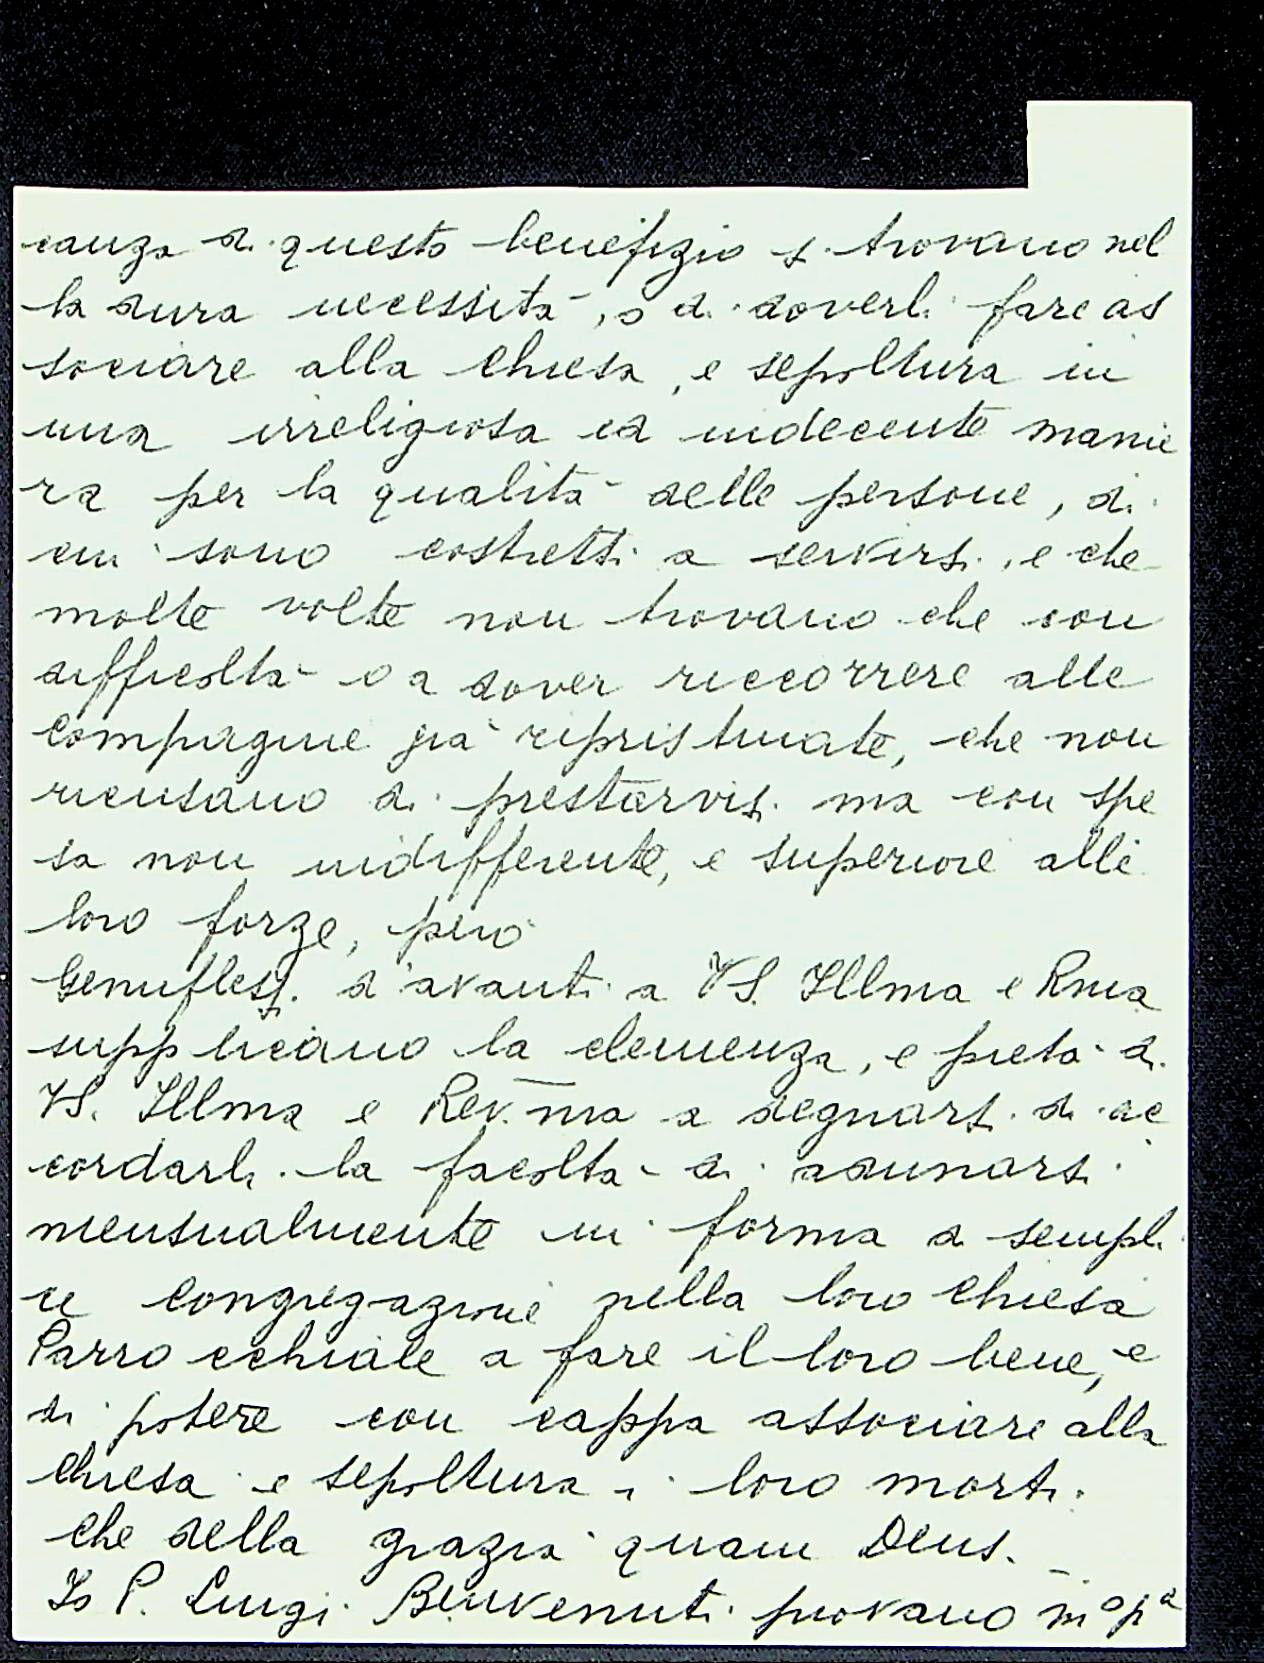 canza di questo benefizio si trovano nel
la dura necessità, o di doverli fare as
sociare alla Chiesa, e sepoltura in
una irreligiosa ed indecente manie
ra per la qualità delle persone, di
cui sono costretti a servirsi, e che
molte volte non trovano che con
difficoltà o a dover riccorrere alle
compagnie già ripristinate, che non
ricusano di prestarvisi ma con spe
sa non indifferente, e superiore alle
loro forze, però
Genuflessi d'avanti a VS. Illma e Rma
supplicano la clemenza, e pietà di
VS. Illma e Rev.ma a degnarsi di ac
cordarli la facoltà di adunarsi
mensualmente in forma di sempli
ce congregazione nella loro Chiesa
Parrocchiale a fare il loro bene, e
di potere con cappa associare alla
Chiesa e sepoltura i loro morti.
Che della grazia quam Deus.
Io P. Luigi Benvenuti piovano mº pª